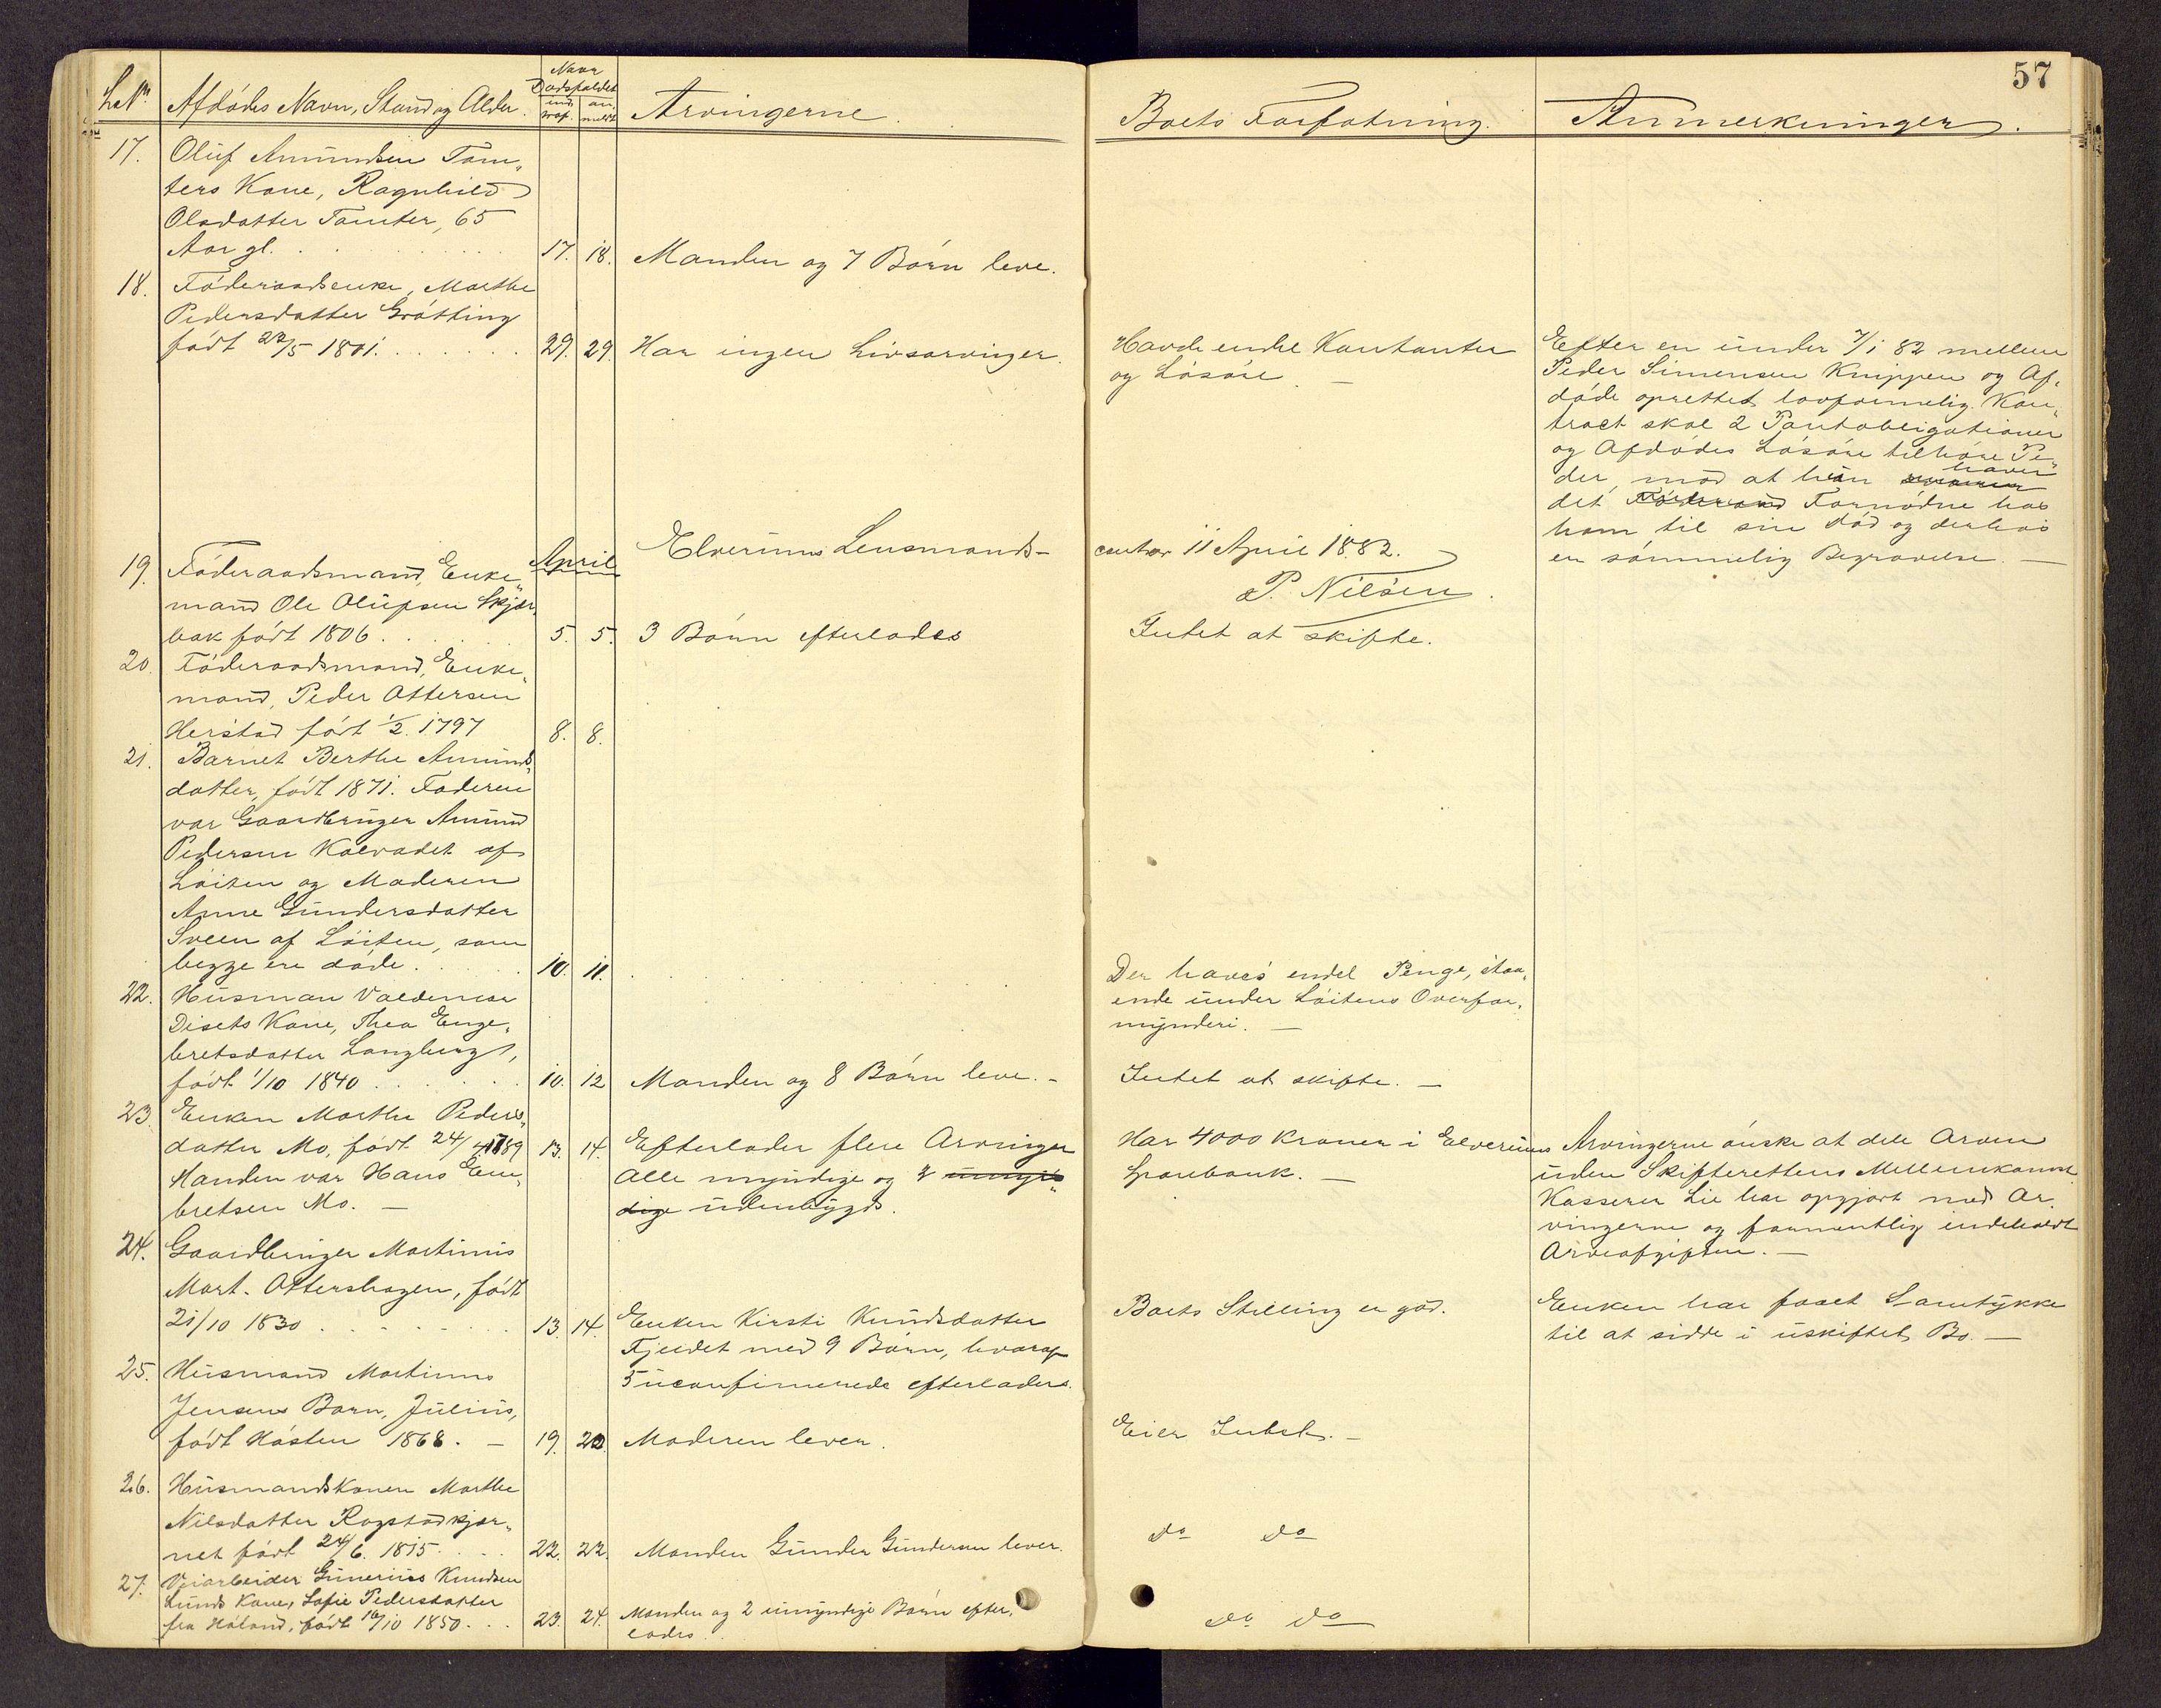 57
LNo
Afdødes Navn, Stand og Alder.
Naar
Dødsfaldet
ind
traf.
an
meldt
Arvingerne.
Boets Forfatning.
Anmerkninger.
17. Oluf Amundsen Tom„
ters Kone, Ragnhild
Olsdatter Tomter, 65
Aar gl. . . . 17. 18. Manden og 7 Börn leve.
18. Föderaadsenke, Marthe
Pedersdatter Gröttting
född 22/5 1801. . . . 29. 29. Har ingen Livsarvinger.
Havde endel Kontanter
og Lösöre. —
Efter en under 7/1 82 mellem
Peder Simensen Knippen og Af„
döde oprettet lovformelig Kon„
tract skal 2 Pantobligationer
og Afdödes Lösöre tilhöre Pe„
der, mod at hun haver
det Föderaad Fornödne hos
ham til sin död og derhos
en sömmelig Begravelse. —
Elverums Lensmands-
contor 11 April 1882.
P. Nilsen.
April
19. Föderaadsmand, Enke„
mand Ole Olufsen Skjær„
bak født 1806. . . . 5. 5. 3 Börn efterlades
Intet at skifte.
20. Föderaadsmand, Enke„
mand, Peder Ottersen
Herstad födt 1/2. 1797 8. 8.
21. Barnet Berthe Amunds„
datter, födt 1871. Faderen
var Gaardbruger Amund
Pedersen Kolvadet af
Löiten og Moderen
Anne Gundersdatter
Sveen af Löiten, som
begge ere döde. . . . 10. 11. . . .
Der haves endel Penge, staa„
ende under Löitens Overfor„
mynderi. —
22. Husman Valdemar
Disets Kone, Thea Enge„
bretsdatter Langberg,
født 1/10 1840 . . . 10. 12 Manden og 8 Börn leve. -
Intet at skifte. —
23. Enken Marthe Peders„
datter Mo, födt 24/4 1789 13. 14. Efterlader flere Arvinger
Manden var Hans Em„
bretsen Mo. —
Alle myndige og 2 umyn„
dige udenbygds.
Har 4000 Kroner i Elverums
Sparebank. —
Arvingerne önske at dele Arven
uden Skifterettens Mellemkomst.
Kasserer Lie har opgjort med Ar„
vingerne og formentlig indeholdt
Arveafgiften. —
24. Gaardbruger Martinus
Mart. Ottershagen, födt
21/10 1830 . . . 13. 14. Enken Kirsti Knudsdatter
Fjeldet med 9 Börn, hvoraf
5 uconfirmerede efterlades.
Boets Stilling er god.
Enken har faaet Samtykke
til at sidde i uskiftet Bo. —
25. Husmand Martinus
Jensens Barn, Julius,
födt Hösten 1868. — 19. 20. Moderen lever.
Eier Intet. —
26. Husmandskonen Marthe
Nilsdatter Rogstadkjær„
net födt 24/6. 1815 . . . 22. 22. Manden Gunder Gundersen lever.
do do
27. Veiarbeider Gunerius Knudsen
Lunds Kone, Sofie Pedersdatter
fra Höland, födt 16/10 1850. . . 23. 24. Manden og 2 umyndige Börn efter„
lades.
do do